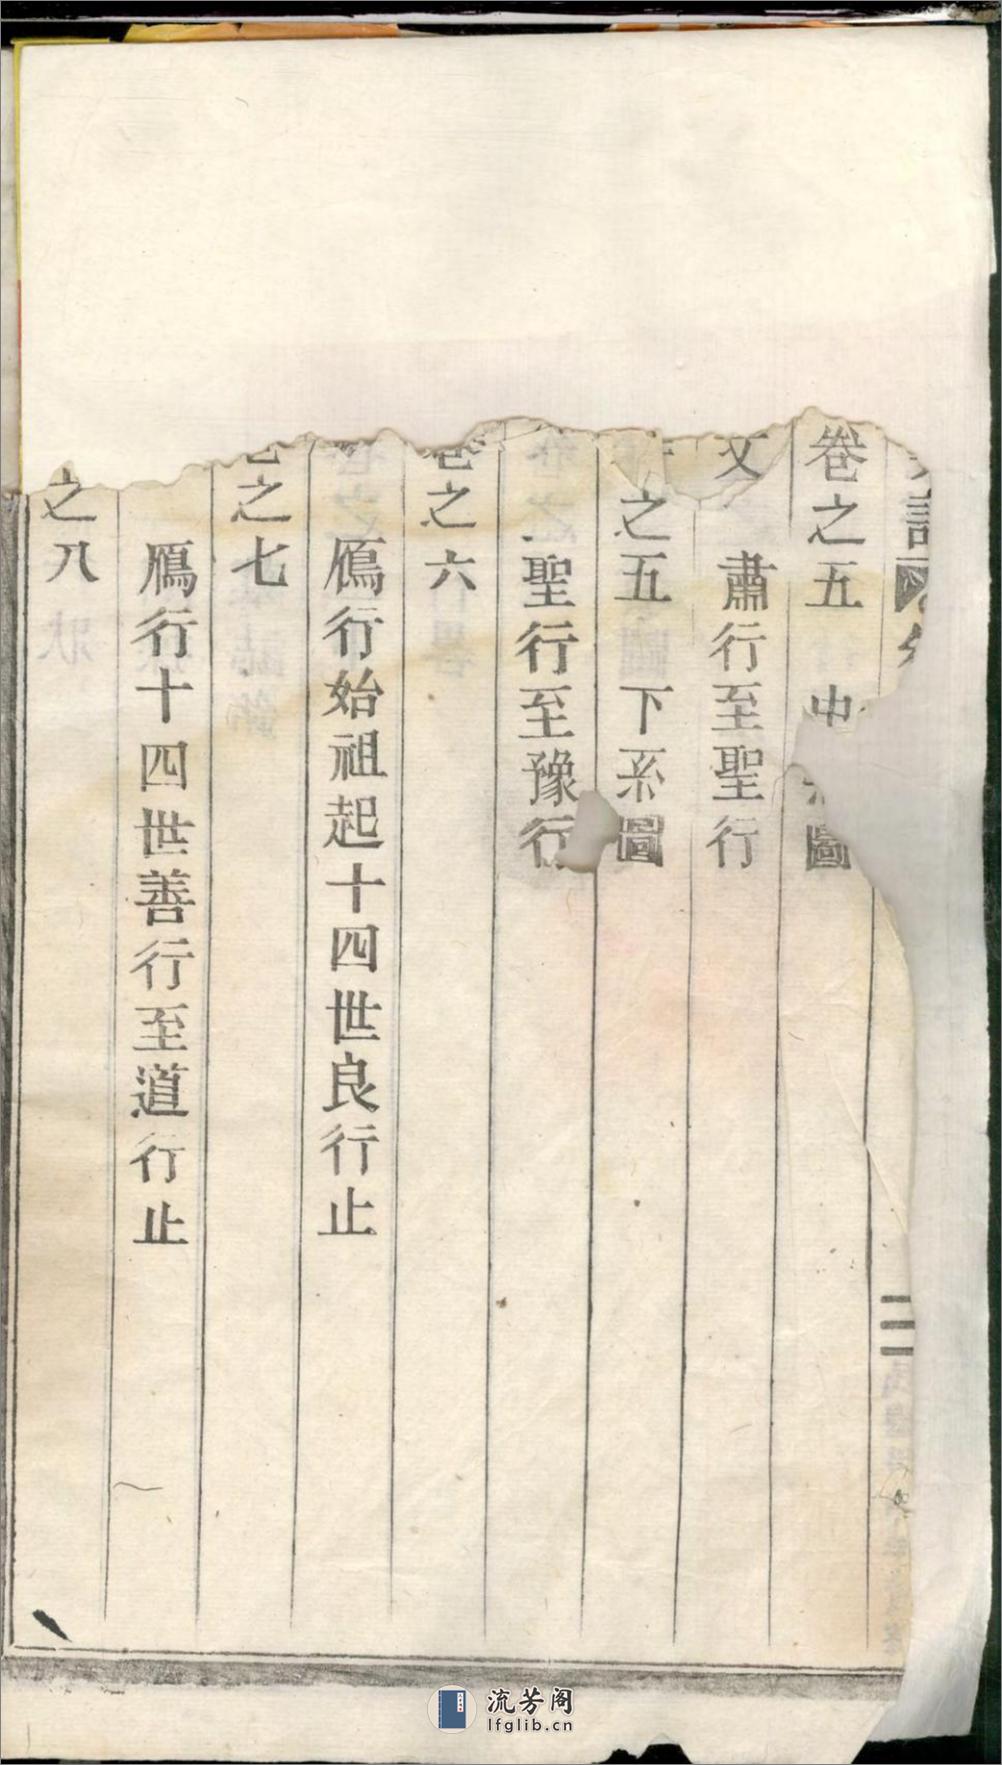 卷之五 中 圖
文 肅行至聖行
之五 下系圖
聖行至豫行
卷之六
鴈行始祖起十四世良行止
之七
鴈行十四世善行至道行止
之八
流芳阁
lfglib.cn